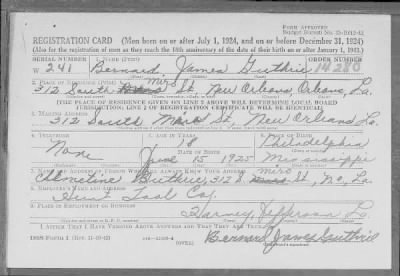 FORM APPROVED
REGISTRATION CARD (Men born on or after July 1, 1924, and on or before December 31, 1924)
(Also for the registration of men as they reach the 18th anniversary of the date of their birth on or after January 1, 1943.)
SERIAL NUMBER 1. NAME (Print) ORDER NUMBER
W 241 Bernard James Guthrie 14280
2. PLACE OF RESIDENCE (Print) Miro
312 South St., New Orleans, Orleans, La.
[THE PLACE OF RESIDENCE GIVEN ON LINE 2 ABOVE WILL DETERMINE LOCAL BOARD
JURISDICTION; LINE 2 OF REGISTRATION CERTIFICATE WILL BE IDENTICAL]
3. MAILING ADDRESS
312 South Miro St., New Orleans La.
4. TELEPHONE 5. AGE IN YEARS 6. PLACE OF BIRTH
None 18 Philadelphia
DATE OF BIRTH
June 15 1925 Mississippi
7. NAME AND ADDRESS OF PERSON WHO WILL ALWAYS KNOW YOUR ADDRESS Miro
Guthrie, 312 S. St., N.O., La.
8. EMPLOYER'S NAME AND ADDRESS
Tool Co.
9. PLACE OF EMPLOYMENT OR BUSINESS
Harvey, Jefferson La.
I AFFIRM THAT I HAVE VERIFIED ABOVE ANSWERS AND THAT THEY ARE TRUE.
(OVER) Bernard James Guthrie